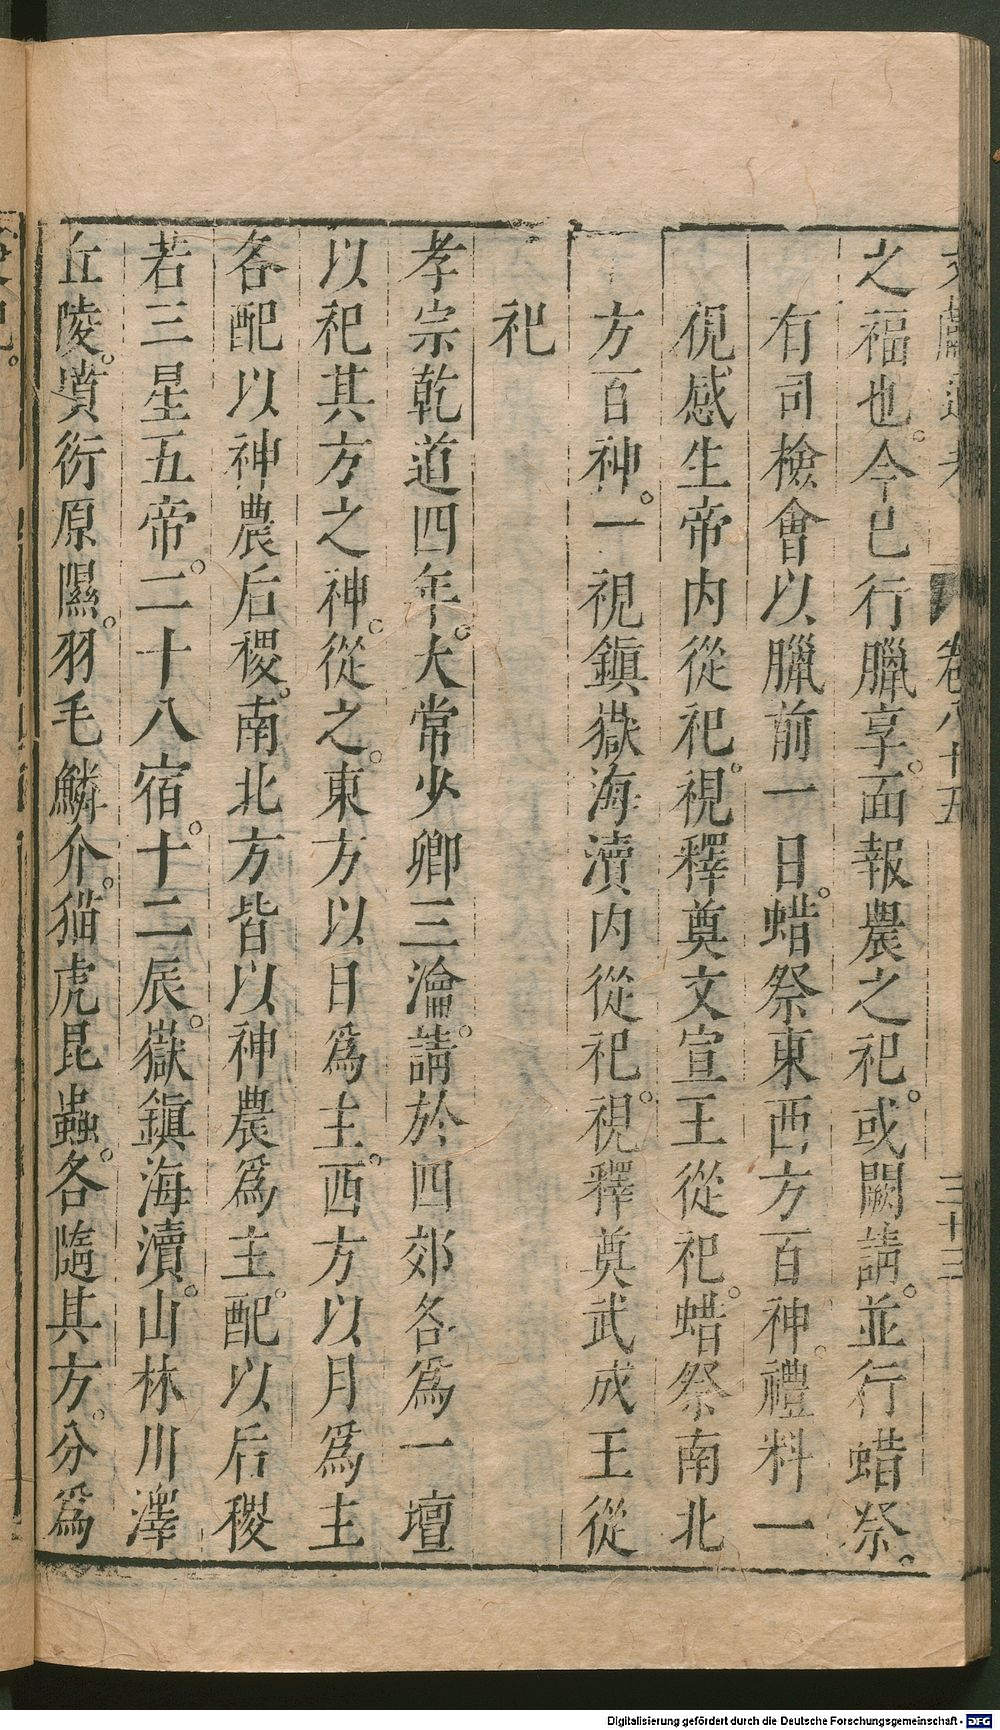 文獻通考 卷八十五 三十三
之福也。今已行臘享。面報農之祀。或闕請。並行蜡祭。
有司檢會以臘前一日。蜡祭東西方百神。禮料一
視感生帝内從祀。視釋奠文宣王從祀。蜡祭南北
方百神。一視鎭嶽海瀆内從祀。視釋奠武成王從
祀
孝宗乾道四年。太常少卿三瀹。請於四郊各爲一壇
以祀其方之神。從之。東方以日爲主。西方以月爲主
各配以神農后稷。南北方皆以神農爲主。配以后稷
若三星五帝。二十八宿。十二辰。嶽鎭海瀆。山林川澤
丘陵。墳衍原隰。羽毛鱗介。猫虎昆蟲。各隨其方。分爲
Digitalisierung gefördert durch die Deutsche Forschungsgemeinschaft - DFG